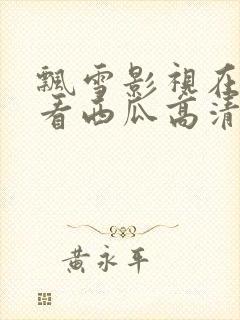 飄雪影視在
看西瓜高清
黃永平